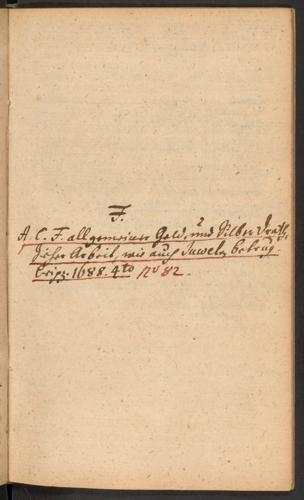 F.
A. C. F. allgemeiner Gold- und Silber Drath-
Arbeit, wie auch Juwelen betrug
Leipz. 1688. 4to No 82.